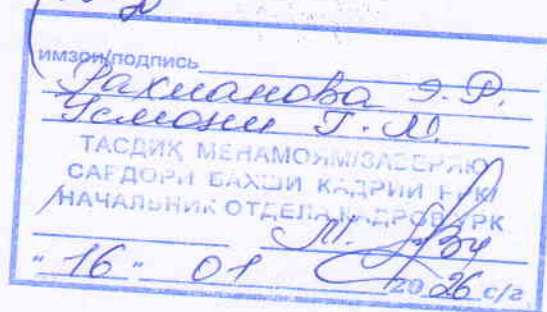 имзои/подпись
Рахманова Э. Р.
Усмони Г. М.
ТАСДИҚ МЕНАМОЯМ/ЗАВЕРЯЮ
САРДОРИ БАХШИ КАДРИИ
НАЧАЛЬНИК ОТДЕЛА КАДРОВ УРК
"16" 01 2026 с/г